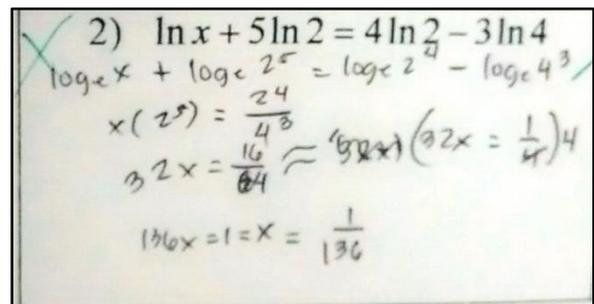 2) ln x + 5 ln 2 = 4 ln 2 − 3 ln 4
logₑx + logₑ 2⁵ = logₑ 2⁴ − logₑ 4³
x(2⁵) = 24/4³
32x = 16/64 ≈ (32x = 1/4)4
136x = 1 = x = 1/136